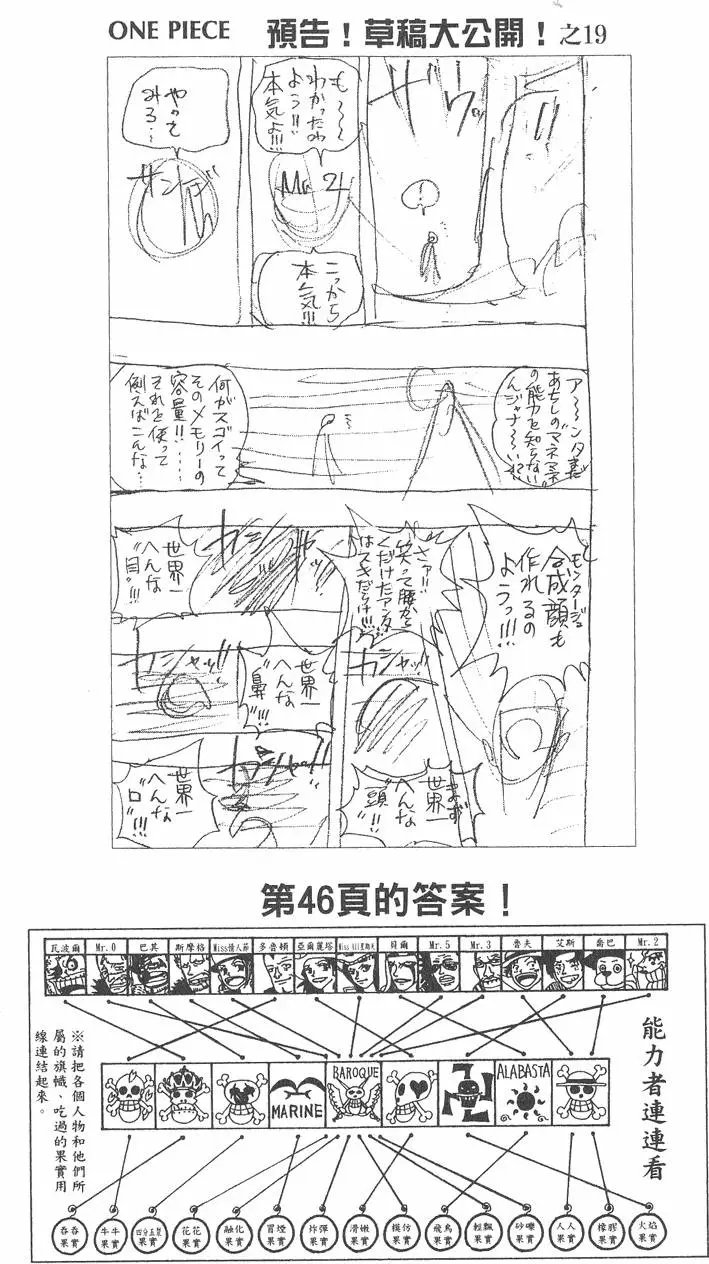 ONE PIECE 預告！草稿大公開！之19
も～～
わかったわ
よう!!
本気よ!!!
Mr 2
こっから
本気!!!
やって
みろ…
サンジ
ア～～ンタまだ
あちしの“マネマネ”
の能力を知らない
んジャナ～～い!?
何がスゴイって
そのメモリーの
容量!!……
それを使って
例えばこんな…
モンタージュ
合成顔も
作れるの
ようっ!!!
さァ!!
笑って腰から
くだけたアンタ
はスキだらけ!!!
まず
世界一
へんな
“頭”!!!
世界一
へんな
“目”!!!
ガシャッ!!
世界一
へんな
“鼻”!!!
ガシャッ!!
世界一
へんな
“口”!!!
第46頁的答案！
瓦波爾 Mr.0 巴其 斯摩格 Miss情人節 多魯頓 亞爾麗塔 貝爾 Mr.5 Mr.3 魯夫 艾斯 喬巴 Mr.2
能力者連連看
※請把各個人物和他們所
屬的旗幟、吃過的果實用
線連結起來。
MARINE
BAROQUE
ALABASTA
吞吞果實
牛牛果實
四分五裂果實
花花果實
融化果實
冒煙果實
炸彈果實
滑嫩果實
模仿果實
飛鳥果實
輕飄果實
砂礫果實
人人果實
橡膠果實
火焰果實